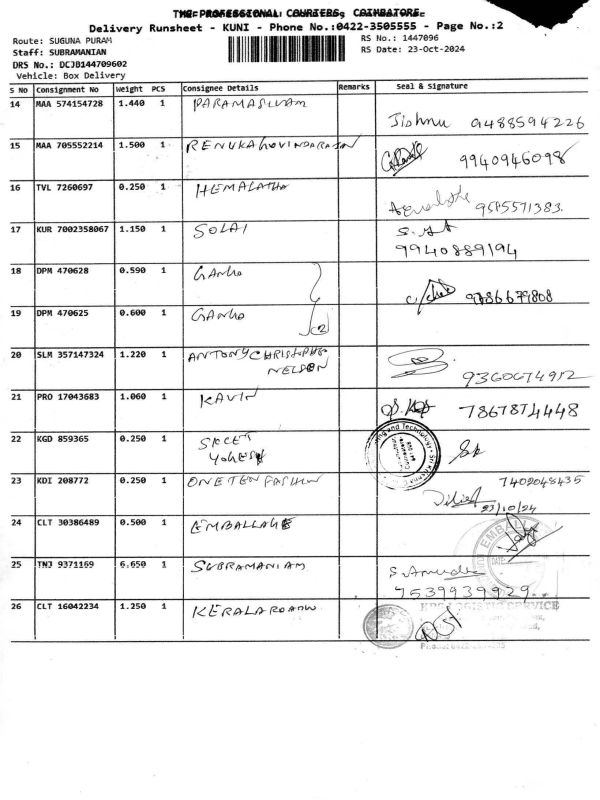 THE PROFESSIONAL COURIERS, COIMBATORE.
Delivery Runsheet - KUNI - Phone No.:0422-3505555 - Page No.:2
Route: SUGUNA PURAM
RS No.: 1447096
Staff: SUBRAMANIAN
RS Date: 23-Oct-2024
DRS No.: DCJB144709602
Vehicle: Box Delivery
S No Consignment No Weight PCS Consignee Details Remarks Seal & Signature
14 MAA 574154728 1.440 1 PARAMASIVAM
Jishnu 9488594226
15 MAA 705552214 1.500 1 RENUKAGOVINDARAJAN
9940946098
16 TVL 7260697 0.250 1 HEMALATHA
9585571383.
17 KUR 7002358067 1.150 1 SOLAI
9940889194
18 DPM 470628 0.590 1
9786679808
19 DPM 470625 0.600 1
(2)
20 SLM 357147324 1.220 1 ANTONYCHRISTOPHER
NELSON
9360674912
21 PRO 17043683 1.060 1 KAVIN
7867874448
22 KGD 859365 0.250 1 SKCET
YOGESH
ing and Technology * Sri Krishna
23 KDI 208772 0.250 1 ONETEN FASHION
7402048435
23/10/24
24 CLT 30386489 0.500 1 EMBALLAGE
EMBALL
DATE
25 TNJ 9371169 6.650 1 SUBRAMANIAM
7539939929
26 CLT 16042234 1.250 1 KERALA ROADW
LOGISTIC SERVICE